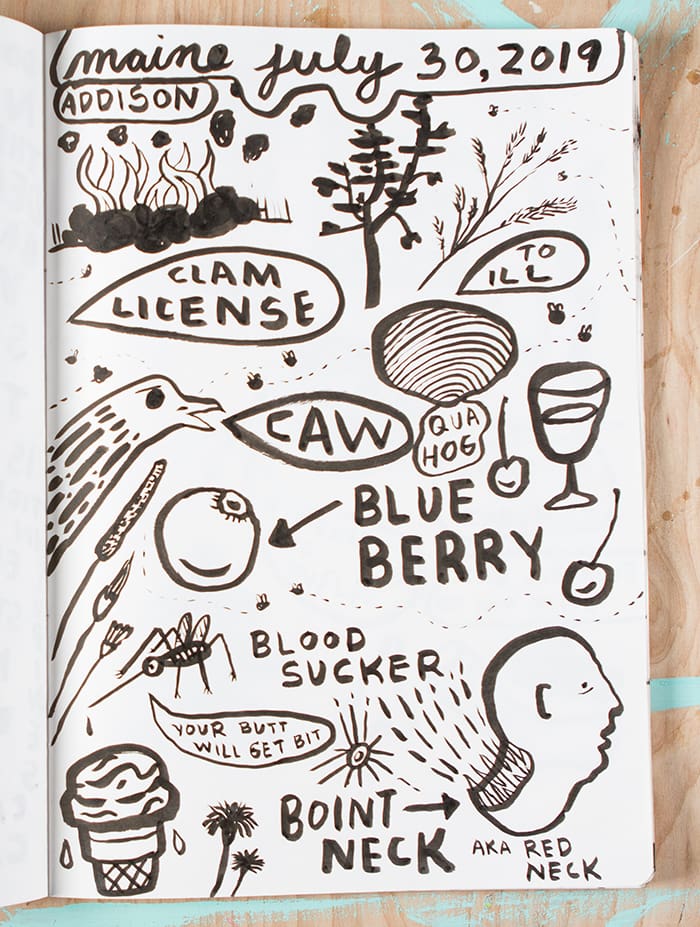 maine july 30, 2019
ADDISON
CLAM
LICENSE
TO
ILL
CAW
QUA
HOG
BLUE
BERRY
BLOOD
SUCKER
YOUR BUTT
WILL GET BIT
BOINT
NECK
AKA RED
NECK